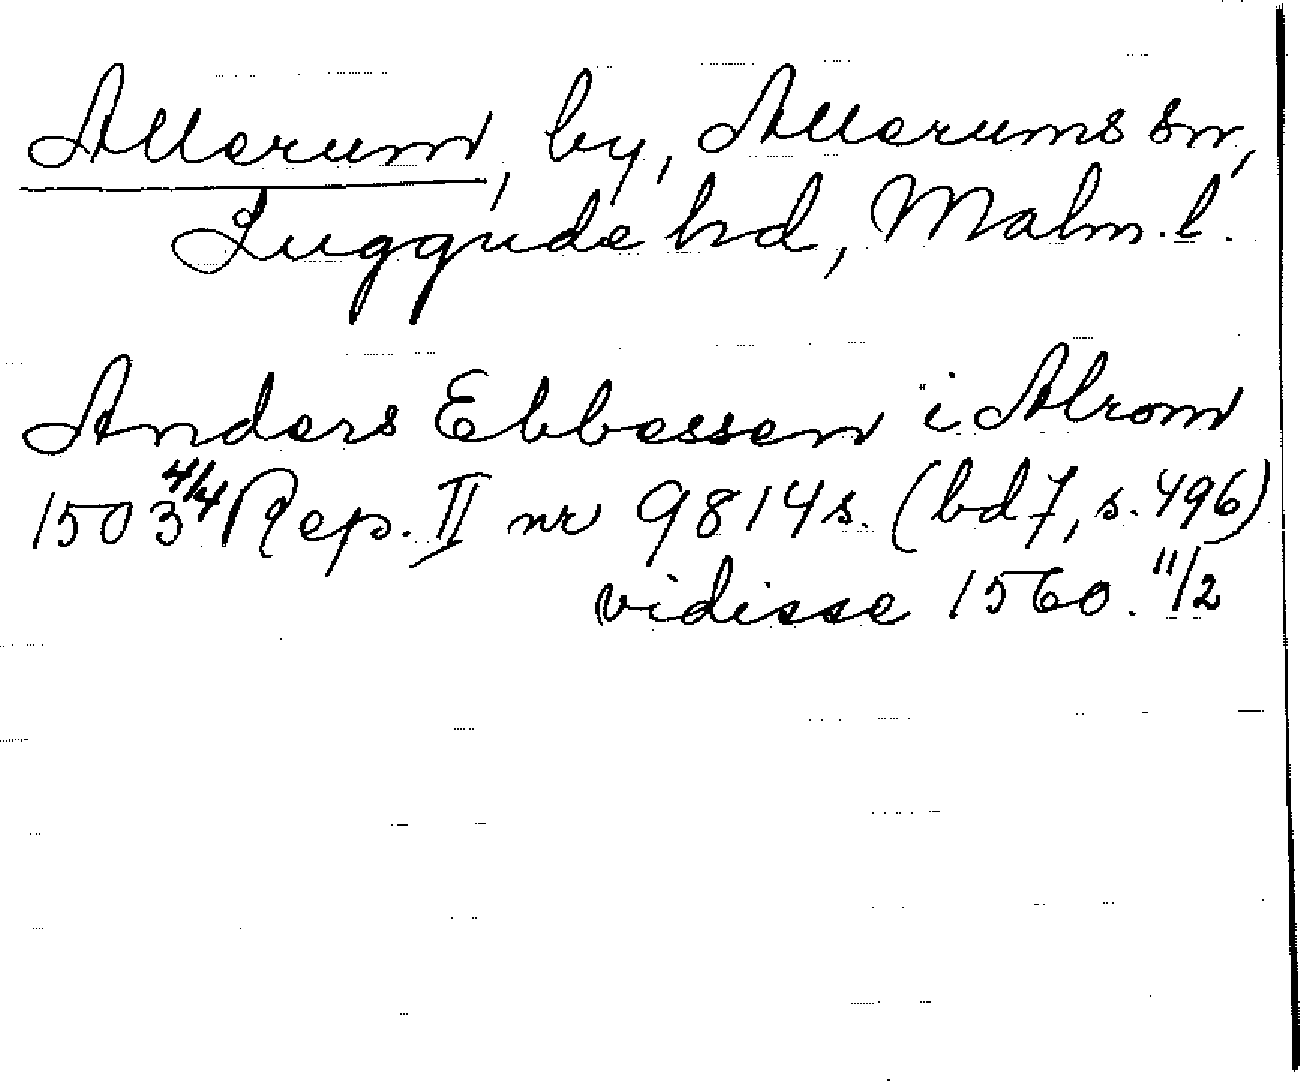 Allerum, by, Allerums sn,
Luggude hd, Malm. l.
Anders Ebbessen i Alrom
1503 4/4 Rep. II nr 9814 s. (bd 7, s. 496)
vidisse 1560. 11/2